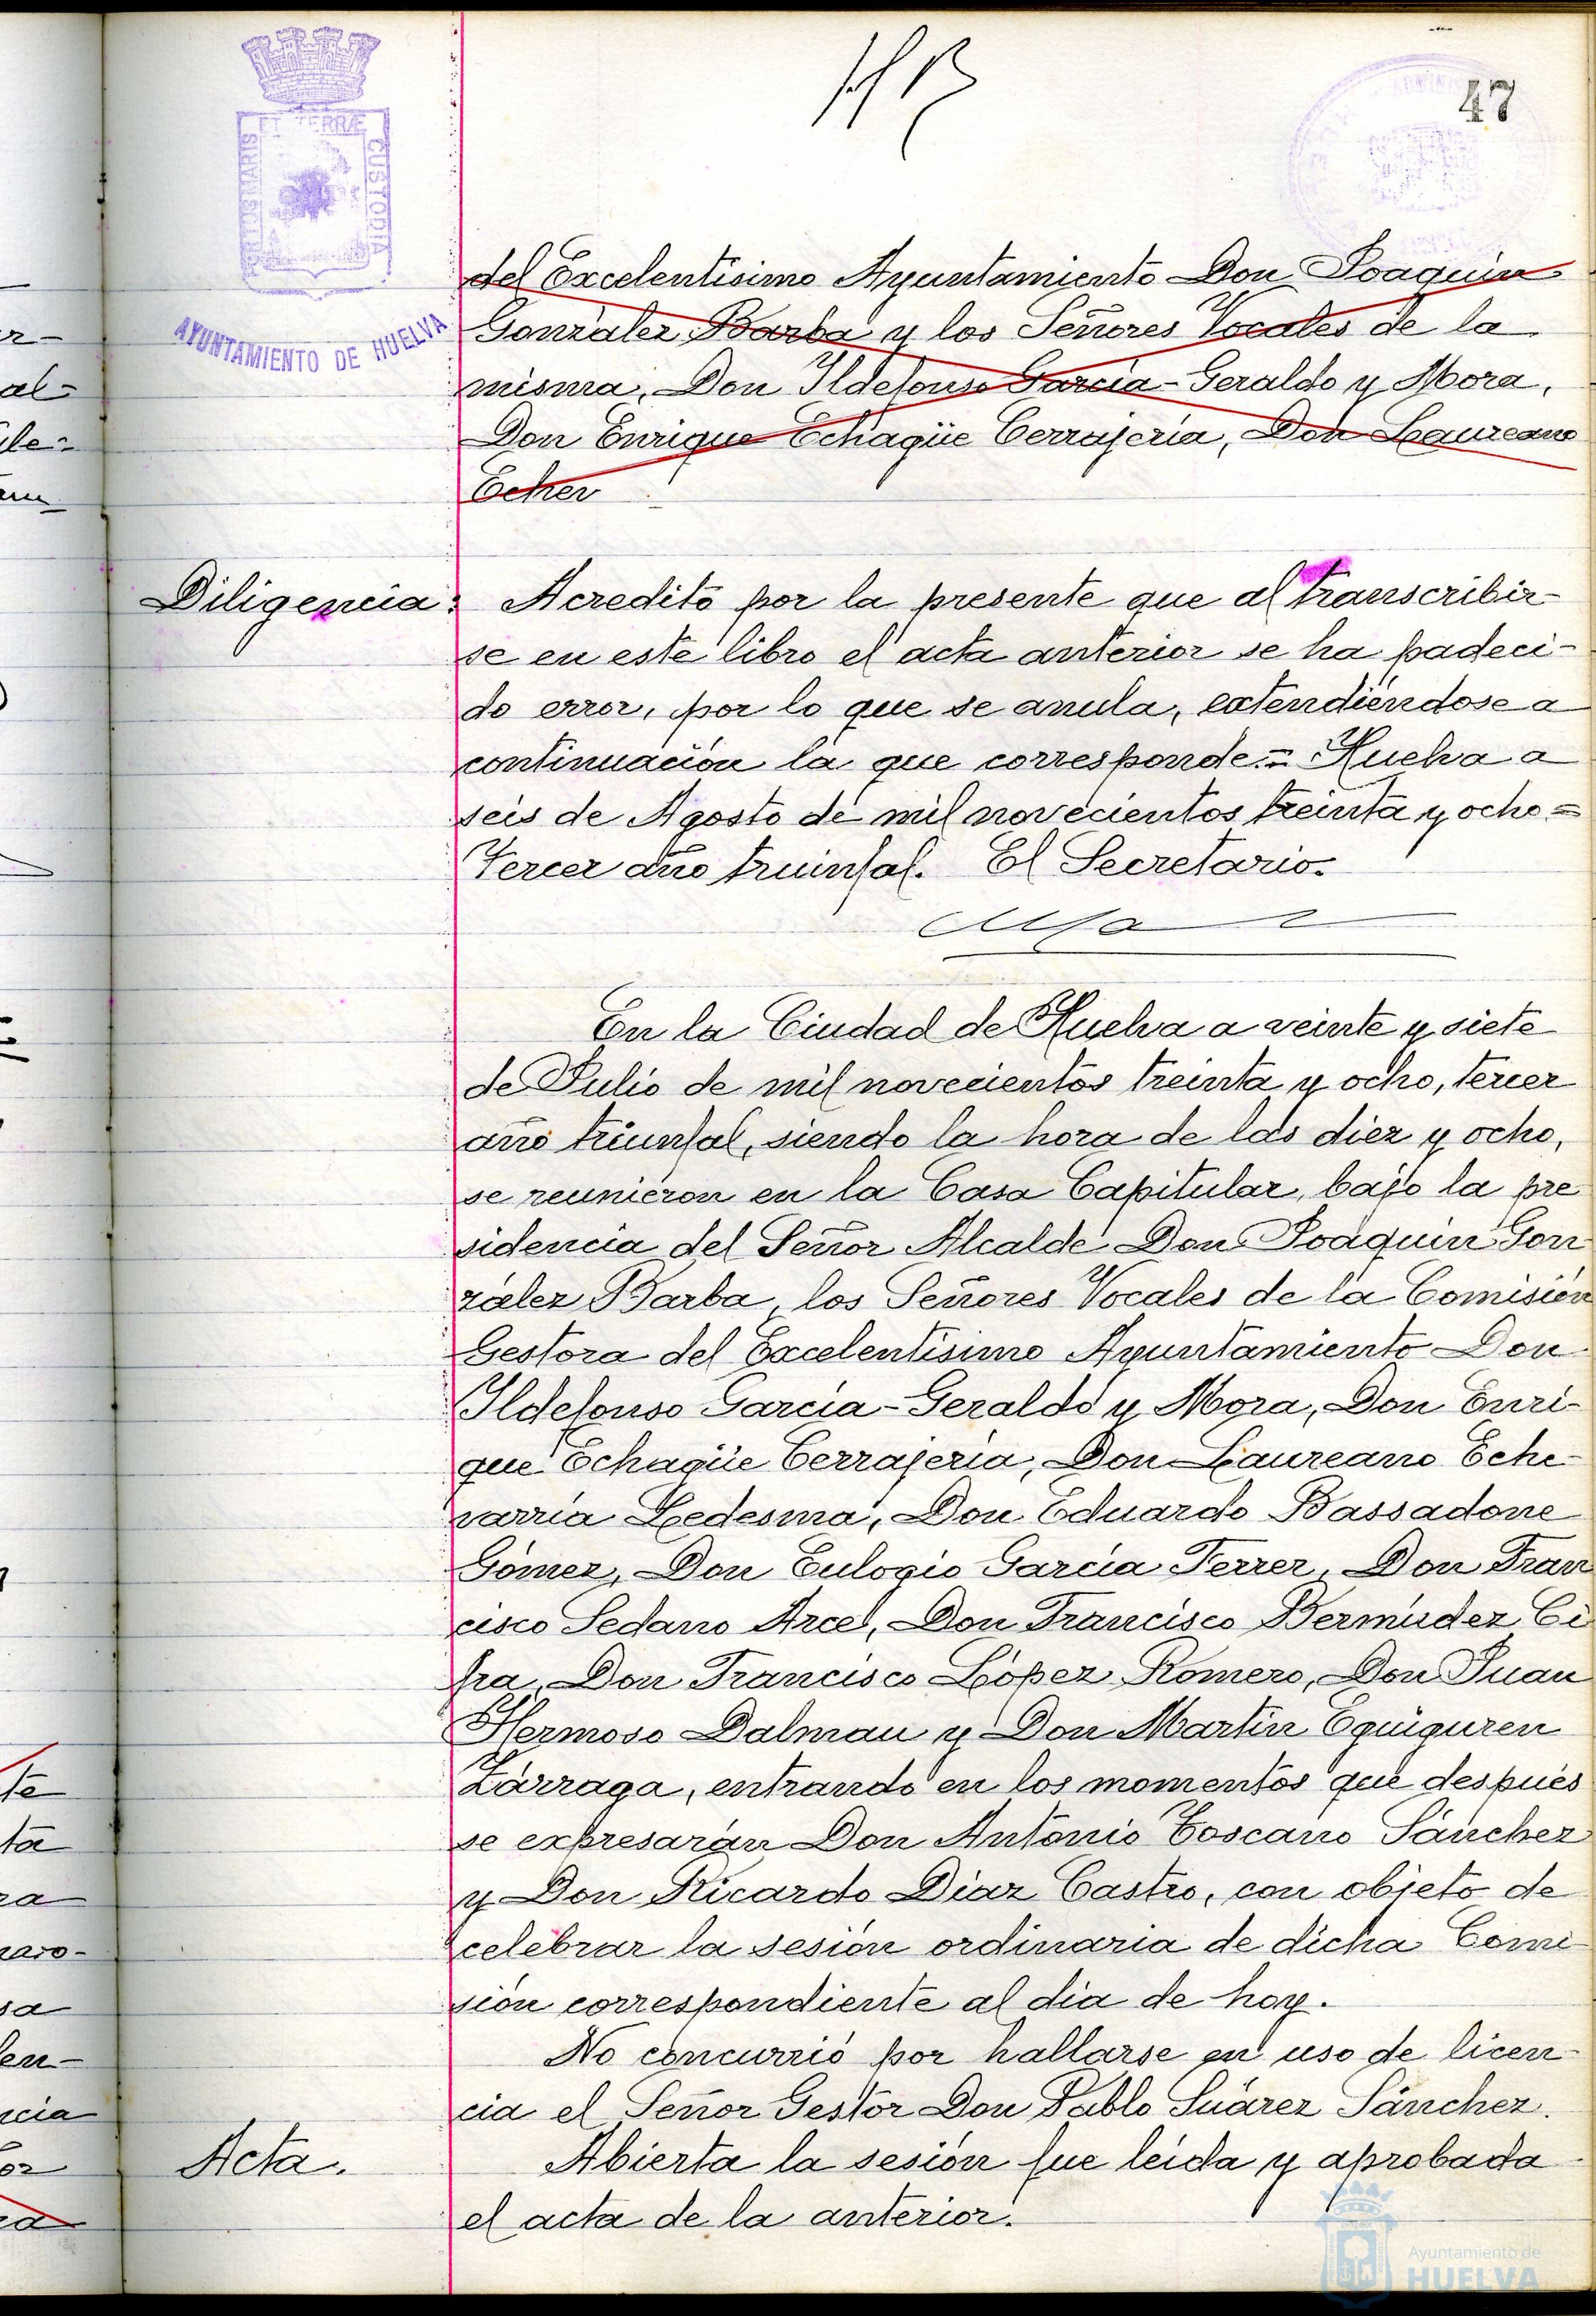 47
PORTUS MARIS ET TERRÆ CUSTODIA
AYUNTAMIENTO DE HUELVA
del Excelentísimo Ayuntamiento Don Joaquín
González Barba y los Señores Vocales de la
misma, Don Ildefonso García-Geraldo y Mora,
Don Enrique Echagüe Cerrajería, Don Laureano
Echev
Diligencia: Acredito por la presente que al transcribir-
se en este libro el acta anterior se ha padeci-
do error, por lo que se anula, extendiéndose a
continuación la que corresponde.= Huelva a
seis de Agosto de mil novecientos treinta y ocho=
Tercer año truinfal. El Secretario.
En la Ciudad de Huelva a veinte y siete
de Julio de mil novecientos treinta y ocho, tercer
año triunfal, siendo la hora de las diez y ocho,
se reunieron en la Casa Capitular, bajo la pre
sidencia del Señor Alcalde Don Joaquín Gon
zález Barba, los Señores Vocales de la Comisión
Gestora del Excelentísimo Ayuntamiento Don
Ildefonso García-Geraldo y Mora, Don Enri-
que Echagüe Cerrajería, Don Laureano Eche-
varría Ledesma, Don Eduardo Bassadone
Gómez, Don Eulogio García Ferrer, Don Fran
cisco Sedano Arce, Don Francisco Bermúdez Ci
fra, Don Francisco López Romero, Don Juan
Hermoso Dalmau y Don Martín Eguiguren
Zárraga, entrando en los momentos que después
se expresarán Don Antonio Toscano Sánchez
y Don Ricardo Díaz Castro, con objeto de
celebrar la sesión ordinaria de dicha Comi
sión correspondiente al día de hoy.
No concurrió por hallarse en uso de licen-
cia el Señor Gestor Don Pablo Suárez Sánchez.
Acta. Abierta la sesión fue leída y aprobada
el acta de la anterior.
Ayuntamiento de
HUELVA